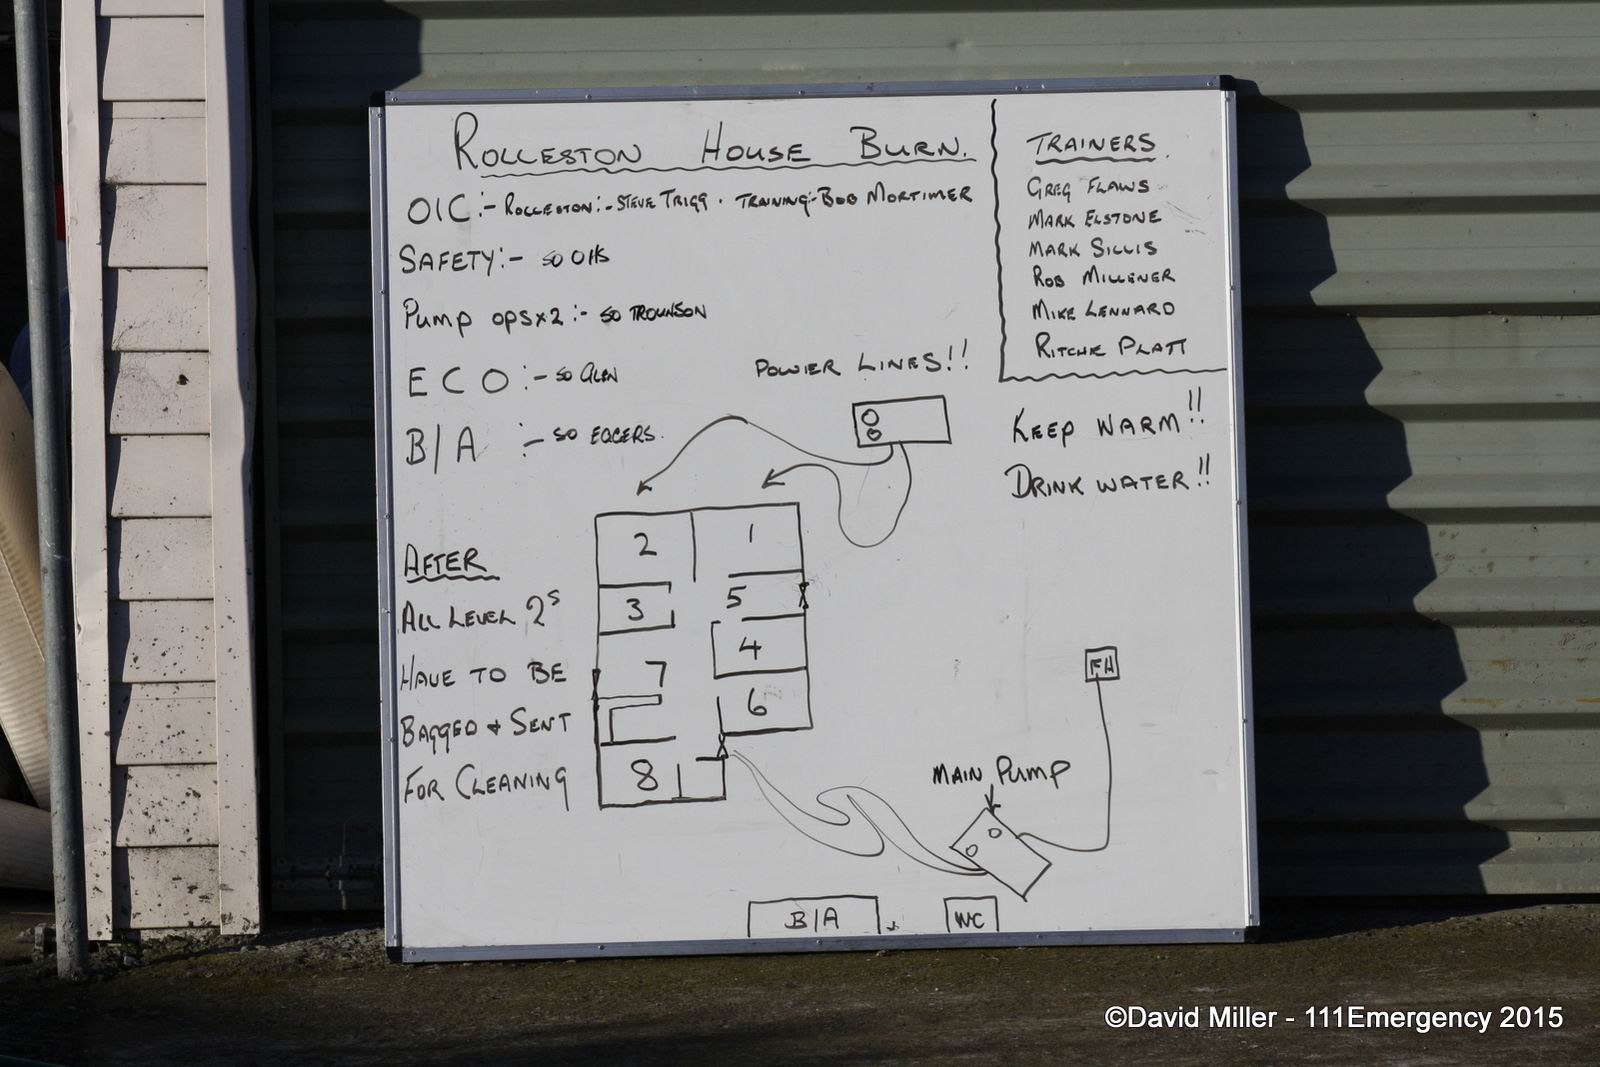 ROLLESTON HOUSE BURN.
OIC:- ROLLESTON:- STEVE TRIGG. TRAINING:- BOB MORTIMER
SAFETY:- SO
PUMP OPS x2:- SO TROUNSON
ECO:- SO
B/A:- SO
TRAINERS.
GREG FLAWS
MARK ELSTONE
MARK SILLIS
ROB MILLENER
MIKE LENNARD
RITCHIE PLATT
POWER LINES!!
KEEP WARM!!
DRINK WATER!!
AFTER
ALL LEVEL 2s
HAVE TO BE
BAGGED + SENT
FOR CLEANING
2 1
3 5
4
7
6
8
FH
MAIN PUMP
B/A
WC
©David Miller - 111Emergency 2015